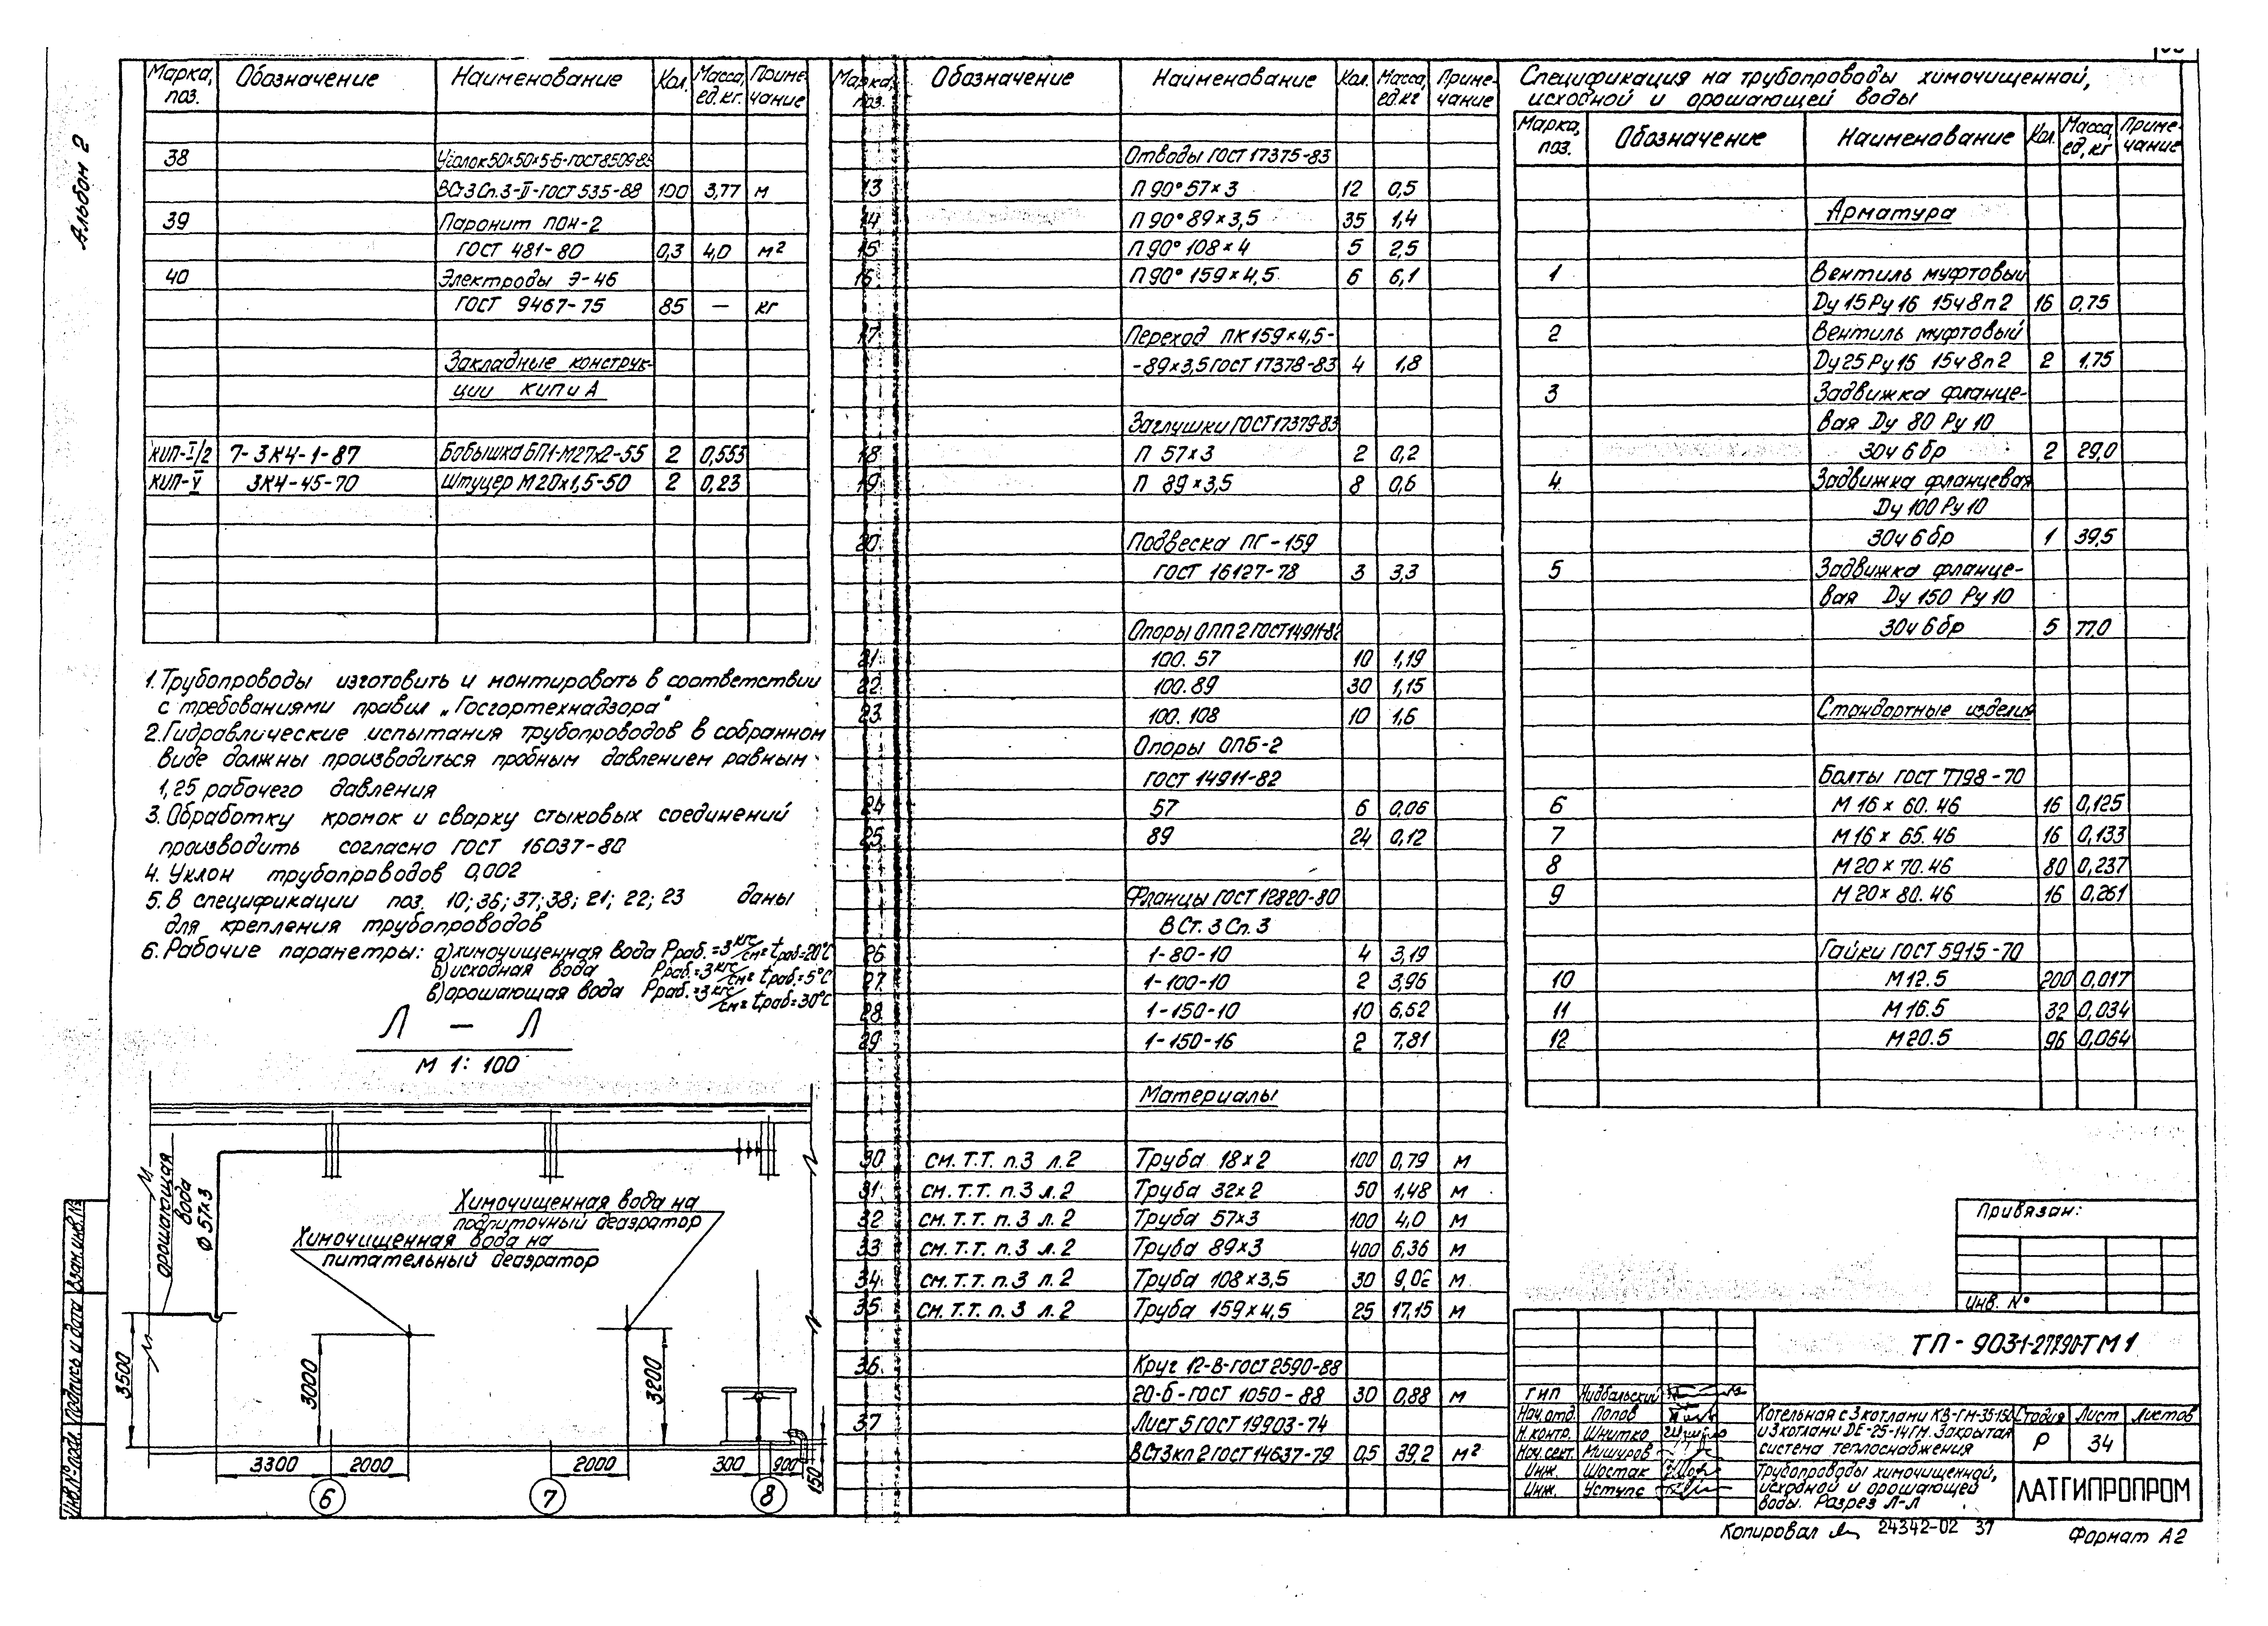 Альбом 2
Марка, поз. Обозначение Наименование Кол. Масса, ед.кг. Приме-чание
38 Уголок 50×50×5-Б-ГОСТ 8509-85
ВСт3Сп.3-II-ГОСТ 535-88 100 3,77 м
39 Паронит ПОН-2
ГОСТ 481-80 0,3 4,0 м²
40 Электроды Э-46
ГОСТ 9467-75 85 — кг
Закладные конструк-
ции КИП и А
КИП-I/2 7-ЗК4-1-87 Бобышка БП1-М27х2-55 2 0,553
КИП-V ЗК4-45-70 Штуцер М20х1,5-50 2 0,23
1. Трубопроводы изготовить и монтировать в соответствии
с требованиями правил „Госгортехнадзора"
2. Гидравлические испытания трубопроводов в собранном
виде должны производиться пробным давлением равным
1,25 рабочего давления
3. Обработку кромок и сварку стыковых соединений
производить согласно ГОСТ 16037-80
4. Уклон трубопроводов 0,002
5. В спецификации поз. 10; 36; 37; 38; 21; 22; 23 даны
для крепления трубопроводов
6. Рабочие параметры: а) химочищенная вода Рраб.=3 кгс/см² tраб=20°С
б) исходная вода Рраб.=3 кгс/см² tраб.=5°С
в) орошающая вода Рраб.=3 кгс/см² tраб=30°С
Л — Л
М 1:100
орошающая
вода
Ф 57х3
Химочищенная вода на
подпиточный деаэратор
Химочищенная вода на
питательный деаэратор
3500
3000
3200
3300 2000 2000 300 900 150
6 7 8
Марка, поз. Обозначение Наименование Кол. Масса, ед.кг Приме-чание
Отводы ГОСТ 17375-83
13 П 90° 57×3 12 0,5
14 П 90° 89×3,5 35 1,4
15 П 90° 108×4 5 2,5
16 П 90° 159×4,5 6 6,1
17 Переход ПК 159×4,5-
-89×3,5 ГОСТ 17378-83 4 1,8
Заглушки ГОСТ 17379-83
18 П 57×3 2 0,2
19 П 89×3,5 8 0,6
20 Подвеска ПГ-159
ГОСТ 16127-78 3 3,3
Опоры ОПП 2 ГОСТ 14911-82
21 100.57 10 1,19
22 100.89 30 1,15
23 100.108 10 1,6
Опоры ОПБ-2
ГОСТ 14911-82
24 57 6 0,06
25 89 24 0,12
Фланцы ГОСТ 12820-80
ВСт.3Сп.3
26 1-80-10 4 3,19
27 1-100-10 2 3,96
28 1-150-10 10 6,62
29 1-150-16 2 7,81
Материалы
30 см. Т.Т. п.3 л.2 Труба 18×2 100 0,79 м
31 см. Т.Т. п.3 л.2 Труба 32×2 50 1,48 м
32 см. Т.Т. п.3 л.2 Труба 57×3 100 4,0 м
33 см. Т.Т. п.3 л.2 Труба 89×3 400 6,36 м
34 см. Т.Т. п.3 л.2 Труба 108×3,5 30 9,02 м
35 см. Т.Т. п.3 л.2 Труба 159×4,5 25 17,15 м
36 Круг 12-В-ГОСТ 2590-88
20-б-ГОСТ 1050-88 30 0,88 м
37 Лист 5 ГОСТ 19903-74
ВСт3кп2 ГОСТ 14637-79 0,5 39,2 м²
Спецификация на трубопроводы химочищенной,
исходной и орошающей воды
Марка, поз. Обозначение Наименование Кол. Масса, ед,кг Приме-чание
Арматура
1 Вентиль муфтовый
Dу 15 Ру 16 15ч8п2 16 0,75
2 Вентиль муфтовый
Dу 25 Ру 16 15ч8п2 2 1,75
3 Задвижка фланце-
вая Dу 80 Ру 10
30ч6бр 2 29,0
4 Задвижка фланцевая
Dу 100 Ру 10
30ч6бр 1 39,5
5 Задвижка фланце-
вая Dу 150 Ру 10
30ч6бр 5 77,0
Стандартные изделия
Болты ГОСТ 7798-70
6 М 16×60.46 16 0,125
7 М 16×65.46 16 0,133
8 М 20×70.46 80 0,237
9 М 20×80.46 16 0,261
Гайки ГОСТ 5915-70
10 М12.5 200 0,017
11 М16.5 32 0,034
12 М20.5 96 0,064
Привязан:
Инв. №
ТП-903-1-277.90-ТМ1
ГИП Нидбальский
Нач.отд. Попов
Н.контр. Шнитко
Нач.сект. Мишуров
Инж. Шостак
Инж. Уступс
Котельная с 3 котлами КВ-ГМ-35-150
и 3 котлами ДЕ-25-14ГМ. Закрытая
система теплоснабжения
Стадия Лист Листов
Р 34
Трубопроводы химочищенной,
исходной и орошающей
воды. Разрез Л-Л
ЛАТГИПРОПРОМ
Копировал 24342-02 37 Формат А2
Инв.№ подл. Подпись и дата Взам.инв.№